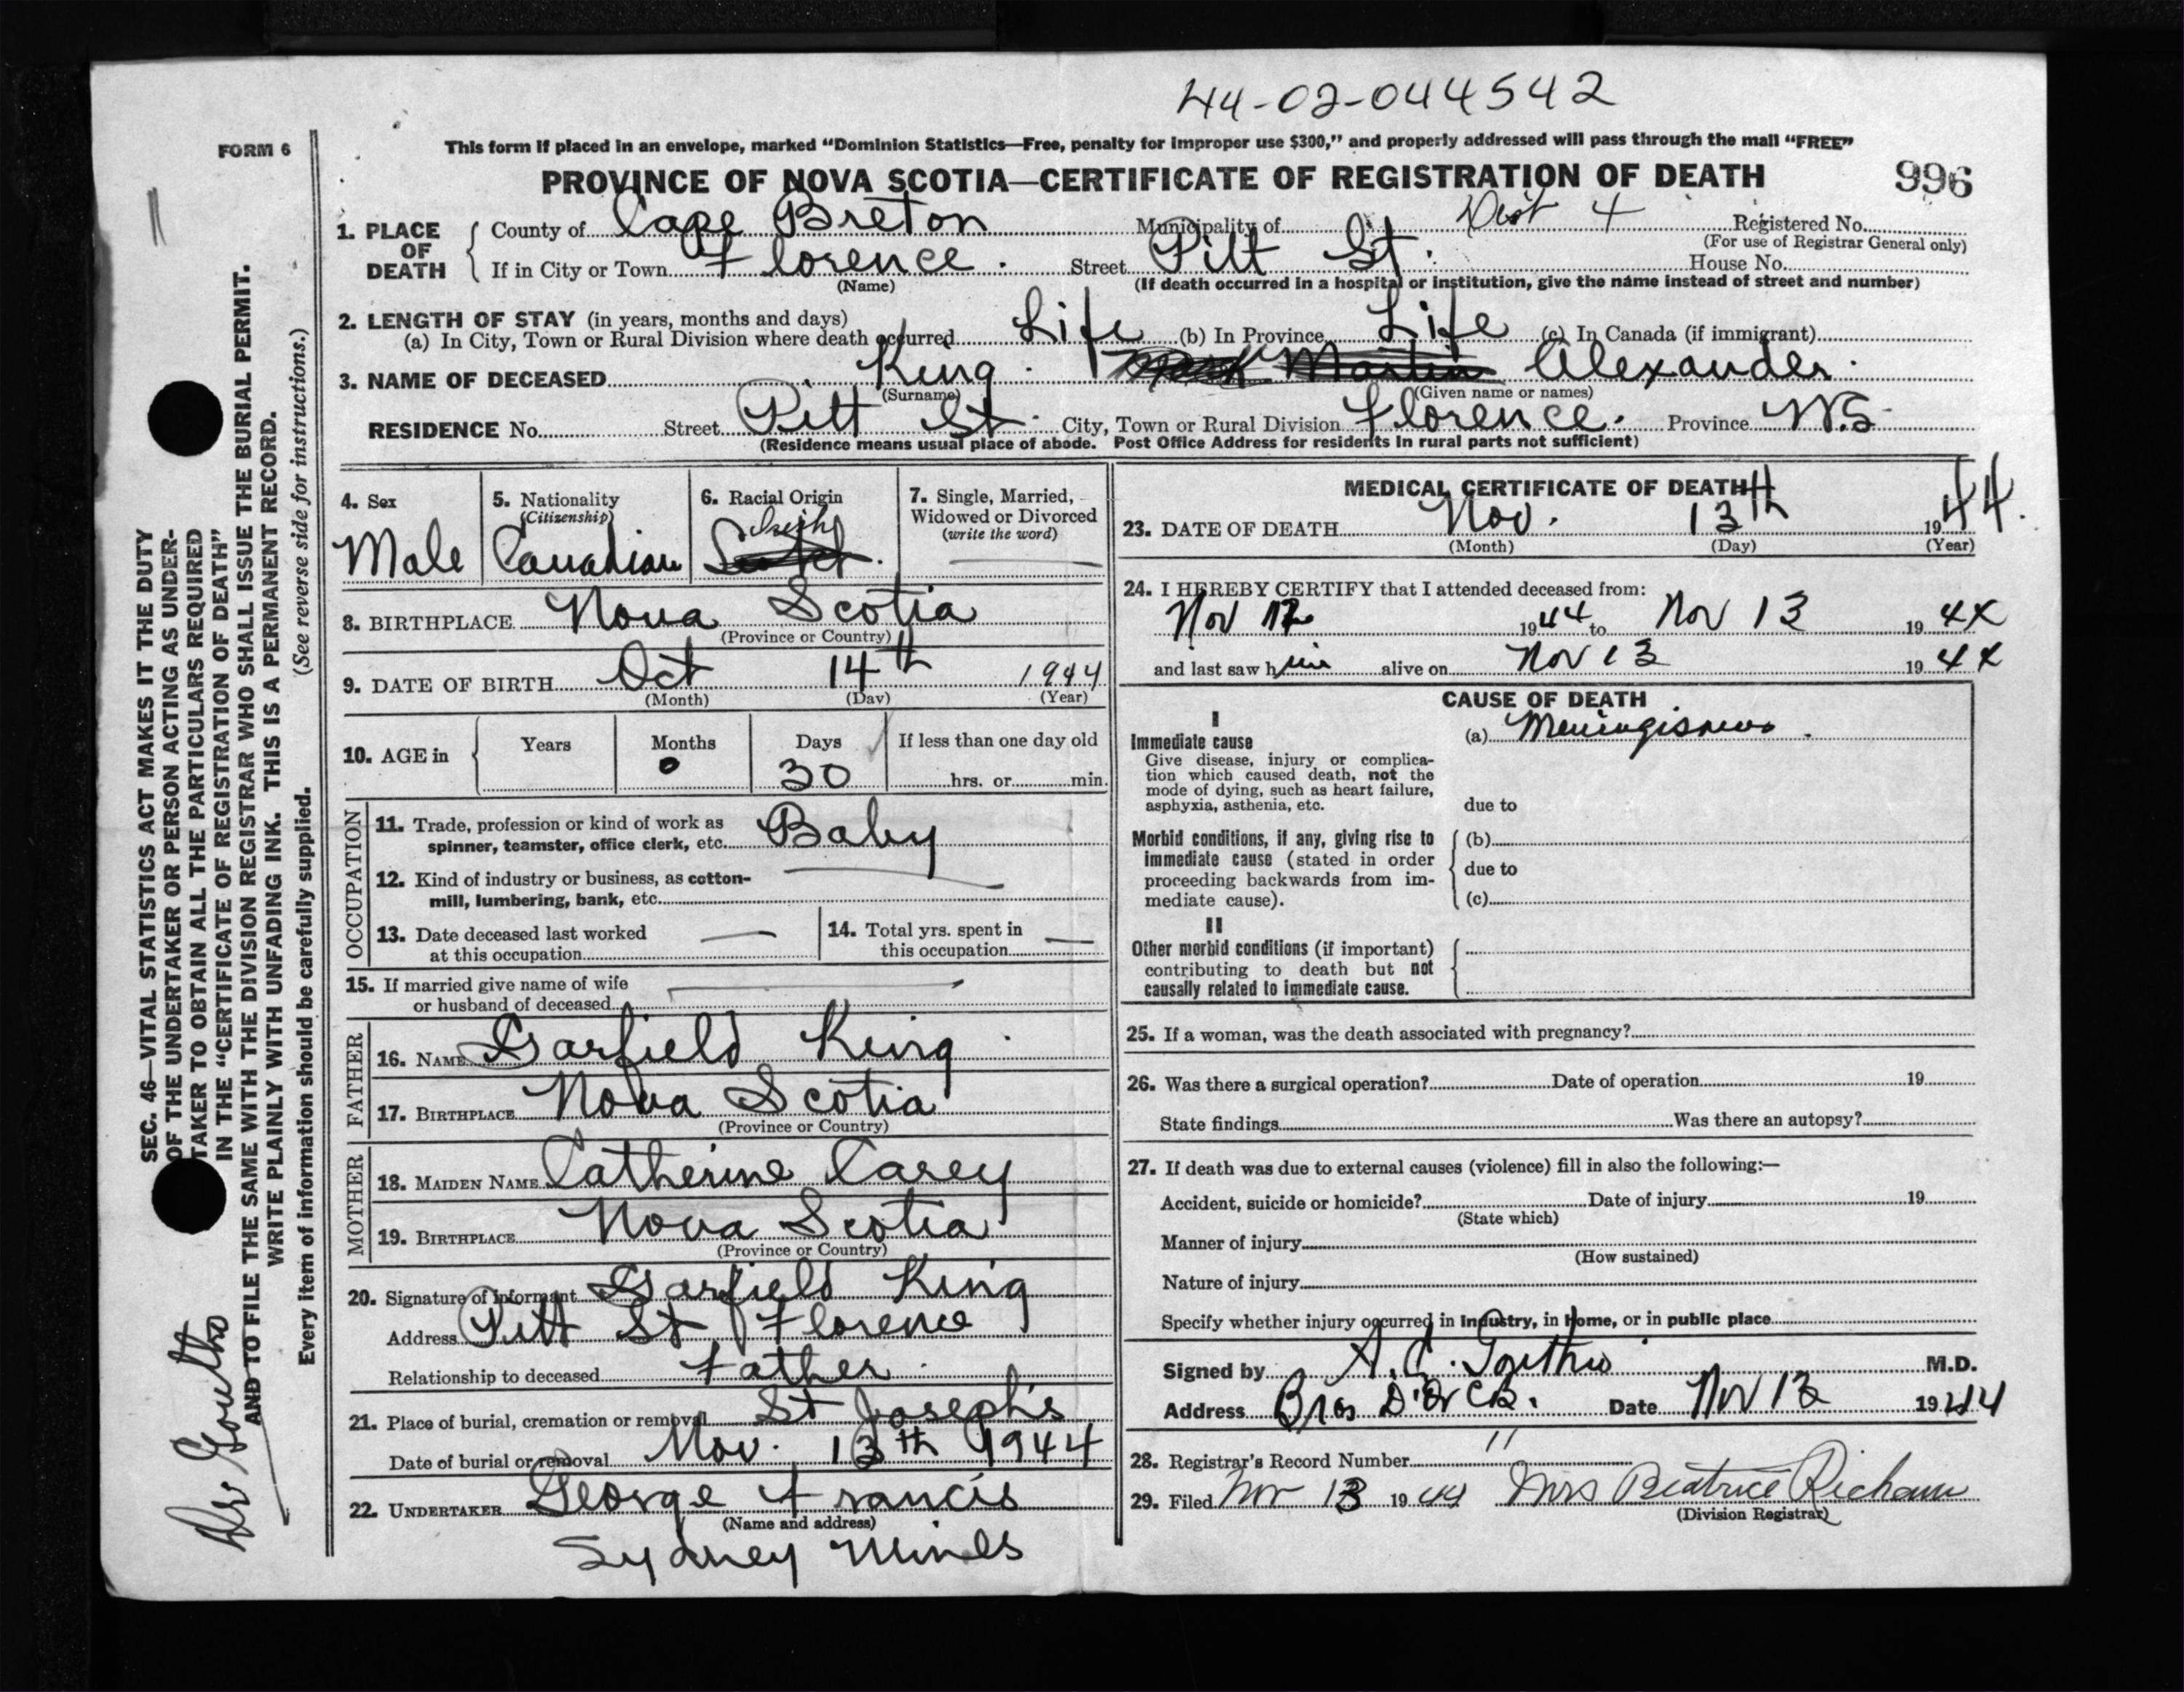 44-02-044542
FORM 6
This form if placed in an envelope, marked “Dominion Statistics—Free, penalty for improper use $300,” and properly addressed will pass through the mail “FREE”
PROVINCE OF NOVA SCOTIA—CERTIFICATE OF REGISTRATION OF DEATH
996
1. PLACE OF DEATH
County of Cape Breton Municipality of Dist 4 Registered No.
(For use of Registrar General only)
If in City or Town Florence. Street Pitt St. House No.
(Name) (If death occurred in a hospital or institution, give the name instead of street and number)
2. LENGTH OF STAY (in years, months and days)
(a) In City, Town or Rural Division where death occurred Life (b) In Province Life (c) In Canada (if immigrant)
3. NAME OF DECEASED King. Martin Alexander.
(Surname) (Given name or names)
RESIDENCE No. Street Pitt St. City, Town or Rural Division Florence. Province N.S.
(Residence means usual place of abode. Post Office Address for residents in rural parts not sufficient)
4. Sex
Male
5. Nationality
(Citizenship)
Canadian
6. Racial Origin
Irish
Scotch.
7. Single, Married, Widowed or Divorced
(write the word)
8. BIRTHPLACE Nova Scotia
(Province or Country)
9. DATE OF BIRTH Oct 14th 1944
(Month) (Day) (Year)
10. AGE in
Years Months Days If less than one day old
0 30 hrs. or min.
OCCUPATION
11. Trade, profession or kind of work as
spinner, teamster, office clerk, etc. Baby
12. Kind of industry or business, as cotton-
mill, lumbering, bank, etc.
13. Date deceased last worked
at this occupation —
14. Total yrs. spent in
this occupation —
15. If married give name of wife
or husband of deceased
FATHER
16. NAME Garfield King
17. BIRTHPLACE Nova Scotia
(Province or Country)
MOTHER
18. MAIDEN NAME Catherine Carey
19. BIRTHPLACE Nova Scotia
(Province or Country)
20. Signature of informant Garfield King
Address Pitt St, Florence
Relationship to deceased Father
21. Place of burial, cremation or removal St Joseph's
Date of burial or removal Nov. 13th 1944
22. UNDERTAKER George Francis
(Name and address)
Sydney Mines
MEDICAL CERTIFICATE OF DEATH
23. DATE OF DEATH Nov. 13th 1944.
(Month) (Day) (Year)
24. I HEREBY CERTIFY that I attended deceased from:
Nov 12 1944 to Nov 13 1944
and last saw him alive on Nov 13 1944
CAUSE OF DEATH
I
Immediate cause
Give disease, injury or complica-
tion which caused death, not the
mode of dying, such as heart failure,
asphyxia, asthenia, etc.
(a) Meningismus.
due to
Morbid conditions, if any, giving rise to
immediate cause (stated in order
proceeding backwards from im-
mediate cause).
(b)
due to
(c)
II
Other morbid conditions (if important)
contributing to death but not
causally related to immediate cause.
25. If a woman, was the death associated with pregnancy?
26. Was there a surgical operation? Date of operation 19
State findings Was there an autopsy?
27. If death was due to external causes (violence) fill in also the following:—
Accident, suicide or homicide? Date of injury 19
(State which)
Manner of injury
(How sustained)
Nature of injury
Specify whether injury occurred in Industry, in Home, or in public place
Signed by A. C. M.D.
Address Bras D'Or CB. Date Nov 13 1944
28. Registrar's Record Number 11
29. Filed Nov 13 1944 Mrs Beatrice
(Division Registrar)
SEC. 46—VITAL STATISTICS ACT MAKES IT THE DUTY
OF THE UNDERTAKER OR PERSON ACTING AS UNDER-
TAKER TO OBTAIN ALL THE PARTICULARS REQUIRED
IN THE “CERTIFICATE OF REGISTRATION OF DEATH”
AND TO FILE THE SAME WITH THE DIVISION REGISTRAR WHO SHALL ISSUE THE BURIAL PERMIT.
WRITE PLAINLY WITH UNFADING INK. THIS IS A PERMANENT RECORD.
Every item of information should be carefully supplied. (See reverse side for instructions.)
Dr